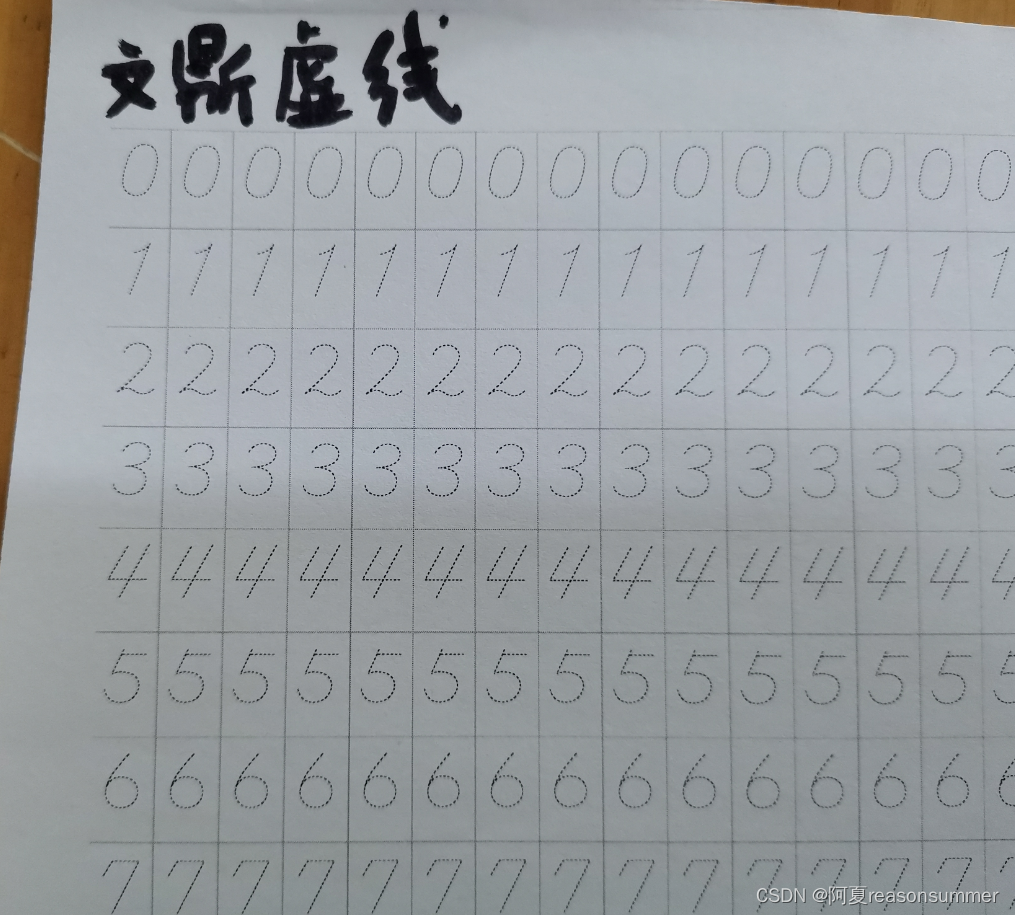 文鼎虚线
0 0 0 0 0 0 0 0 0 0 0 0 0 0 0
1 1 1 1 1 1 1 1 1 1 1 1 1 1 1
2 2 2 2 2 2 2 2 2 2 2 2 2 2 2
3 3 3 3 3 3 3 3 3 3 3 3 3 3 3
4 4 4 4 4 4 4 4 4 4 4 4 4 4 4
5 5 5 5 5 5 5 5 5 5 5 5 5 5 5
6 6 6 6 6 6 6 6 6 6 6 6 6 6 6
7 7 7 7 7 7 7 7 7 7 7 7 7 7 7
CSDN @阿夏reasonsummer